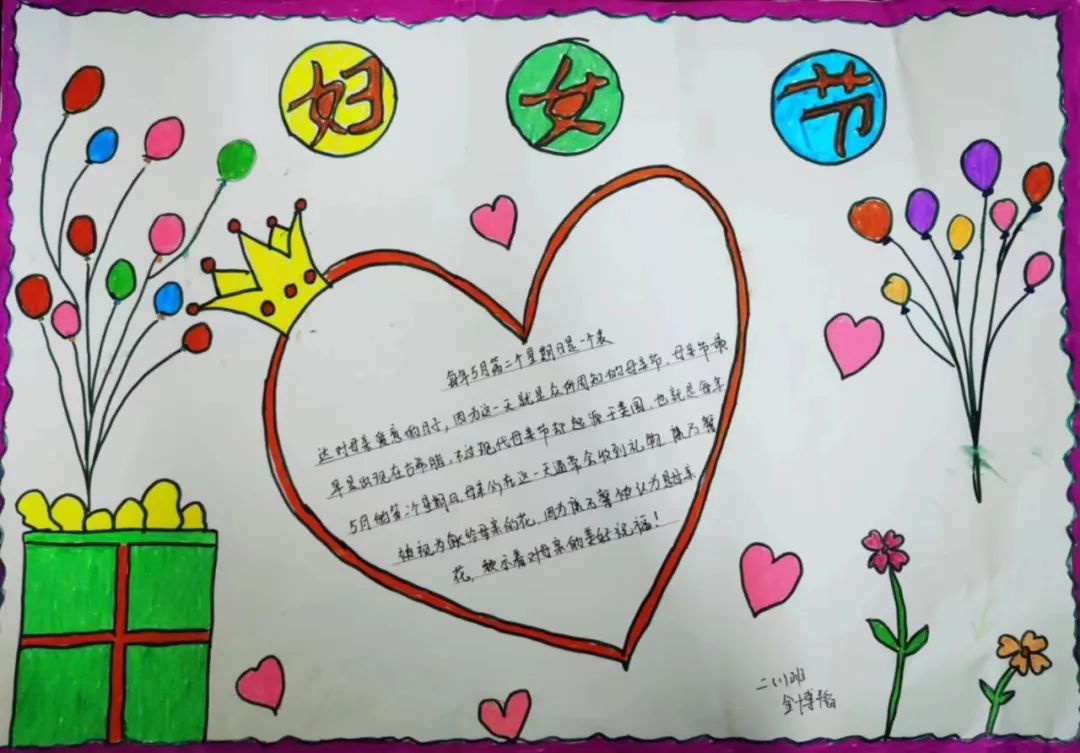 妇女节
每年5月第二个星期日是一个表
达对母亲爱意的日子，因为这一天就是众所周知的母亲节，母亲节最
早是出现在古希腊，不过现代母亲节却起源于美国，也就是每年
5月的第二个星期日，母亲们在这一天通常会收到礼物，康乃馨
被视为献给母亲的花，因为康乃馨被认为是母亲
花，教示着对母亲的美好祝福！
二（1）班
金博韬